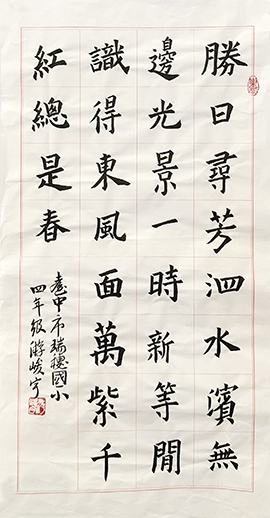 勝日尋芳泗水濱無
邊光景一時新等閒
識得東風面萬紫千
紅總是春
臺中市瑞穗國小
四年級游峻宇